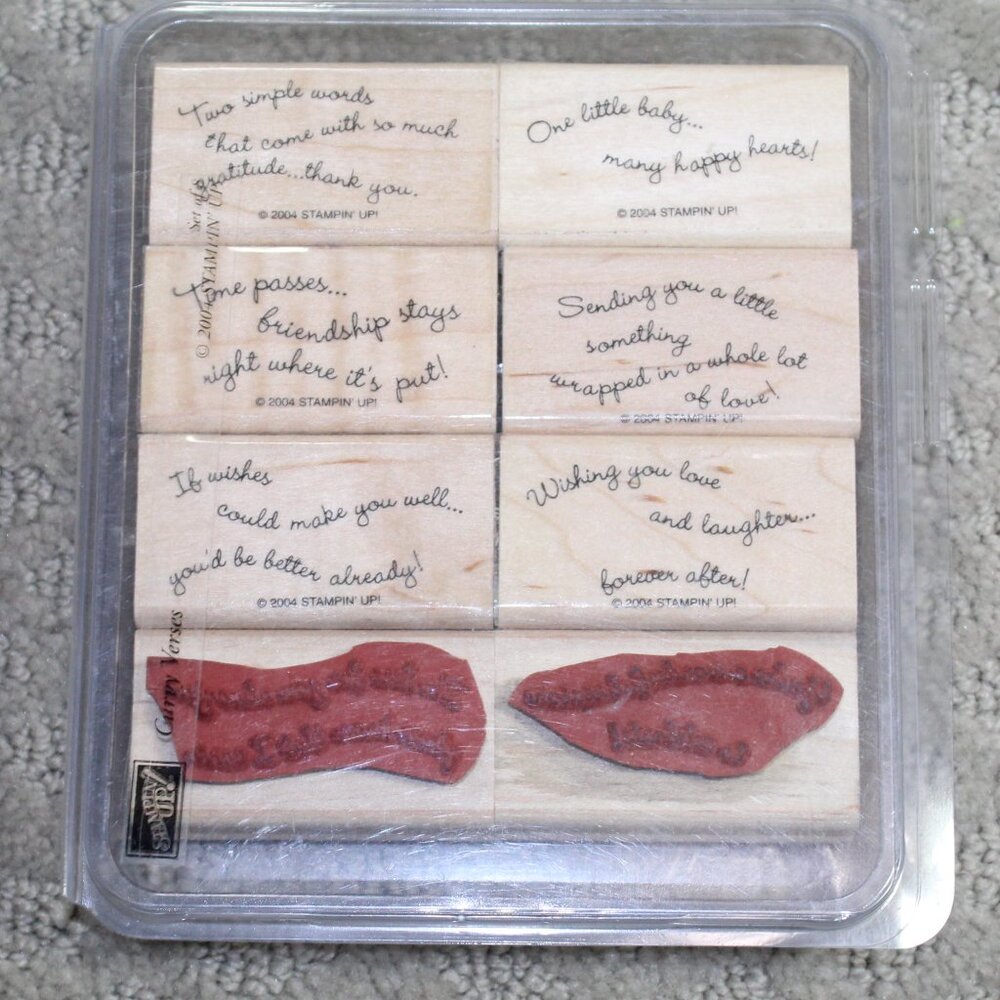 Two simple words
that come with so much
gratitude...thank you.
© 2004 STAMPIN' UP!
One little baby...
many happy hearts!
© 2004 STAMPIN' UP!
Time passes...
friendship stays
right where it's put!
© 2004 STAMPIN' UP!
Sending you a little
something
wrapped in a whole lot
of love!
© 2004 STAMPIN' UP!
If wishes
could make you well...
you'd be better already!
© 2004 STAMPIN' UP!
Wishing you love
and laughter...
forever after!
© 2004 STAMPIN' UP!
Set of
© 2004 STAMPIN' UP!
Curvy Verses
STAMPIN' UP!